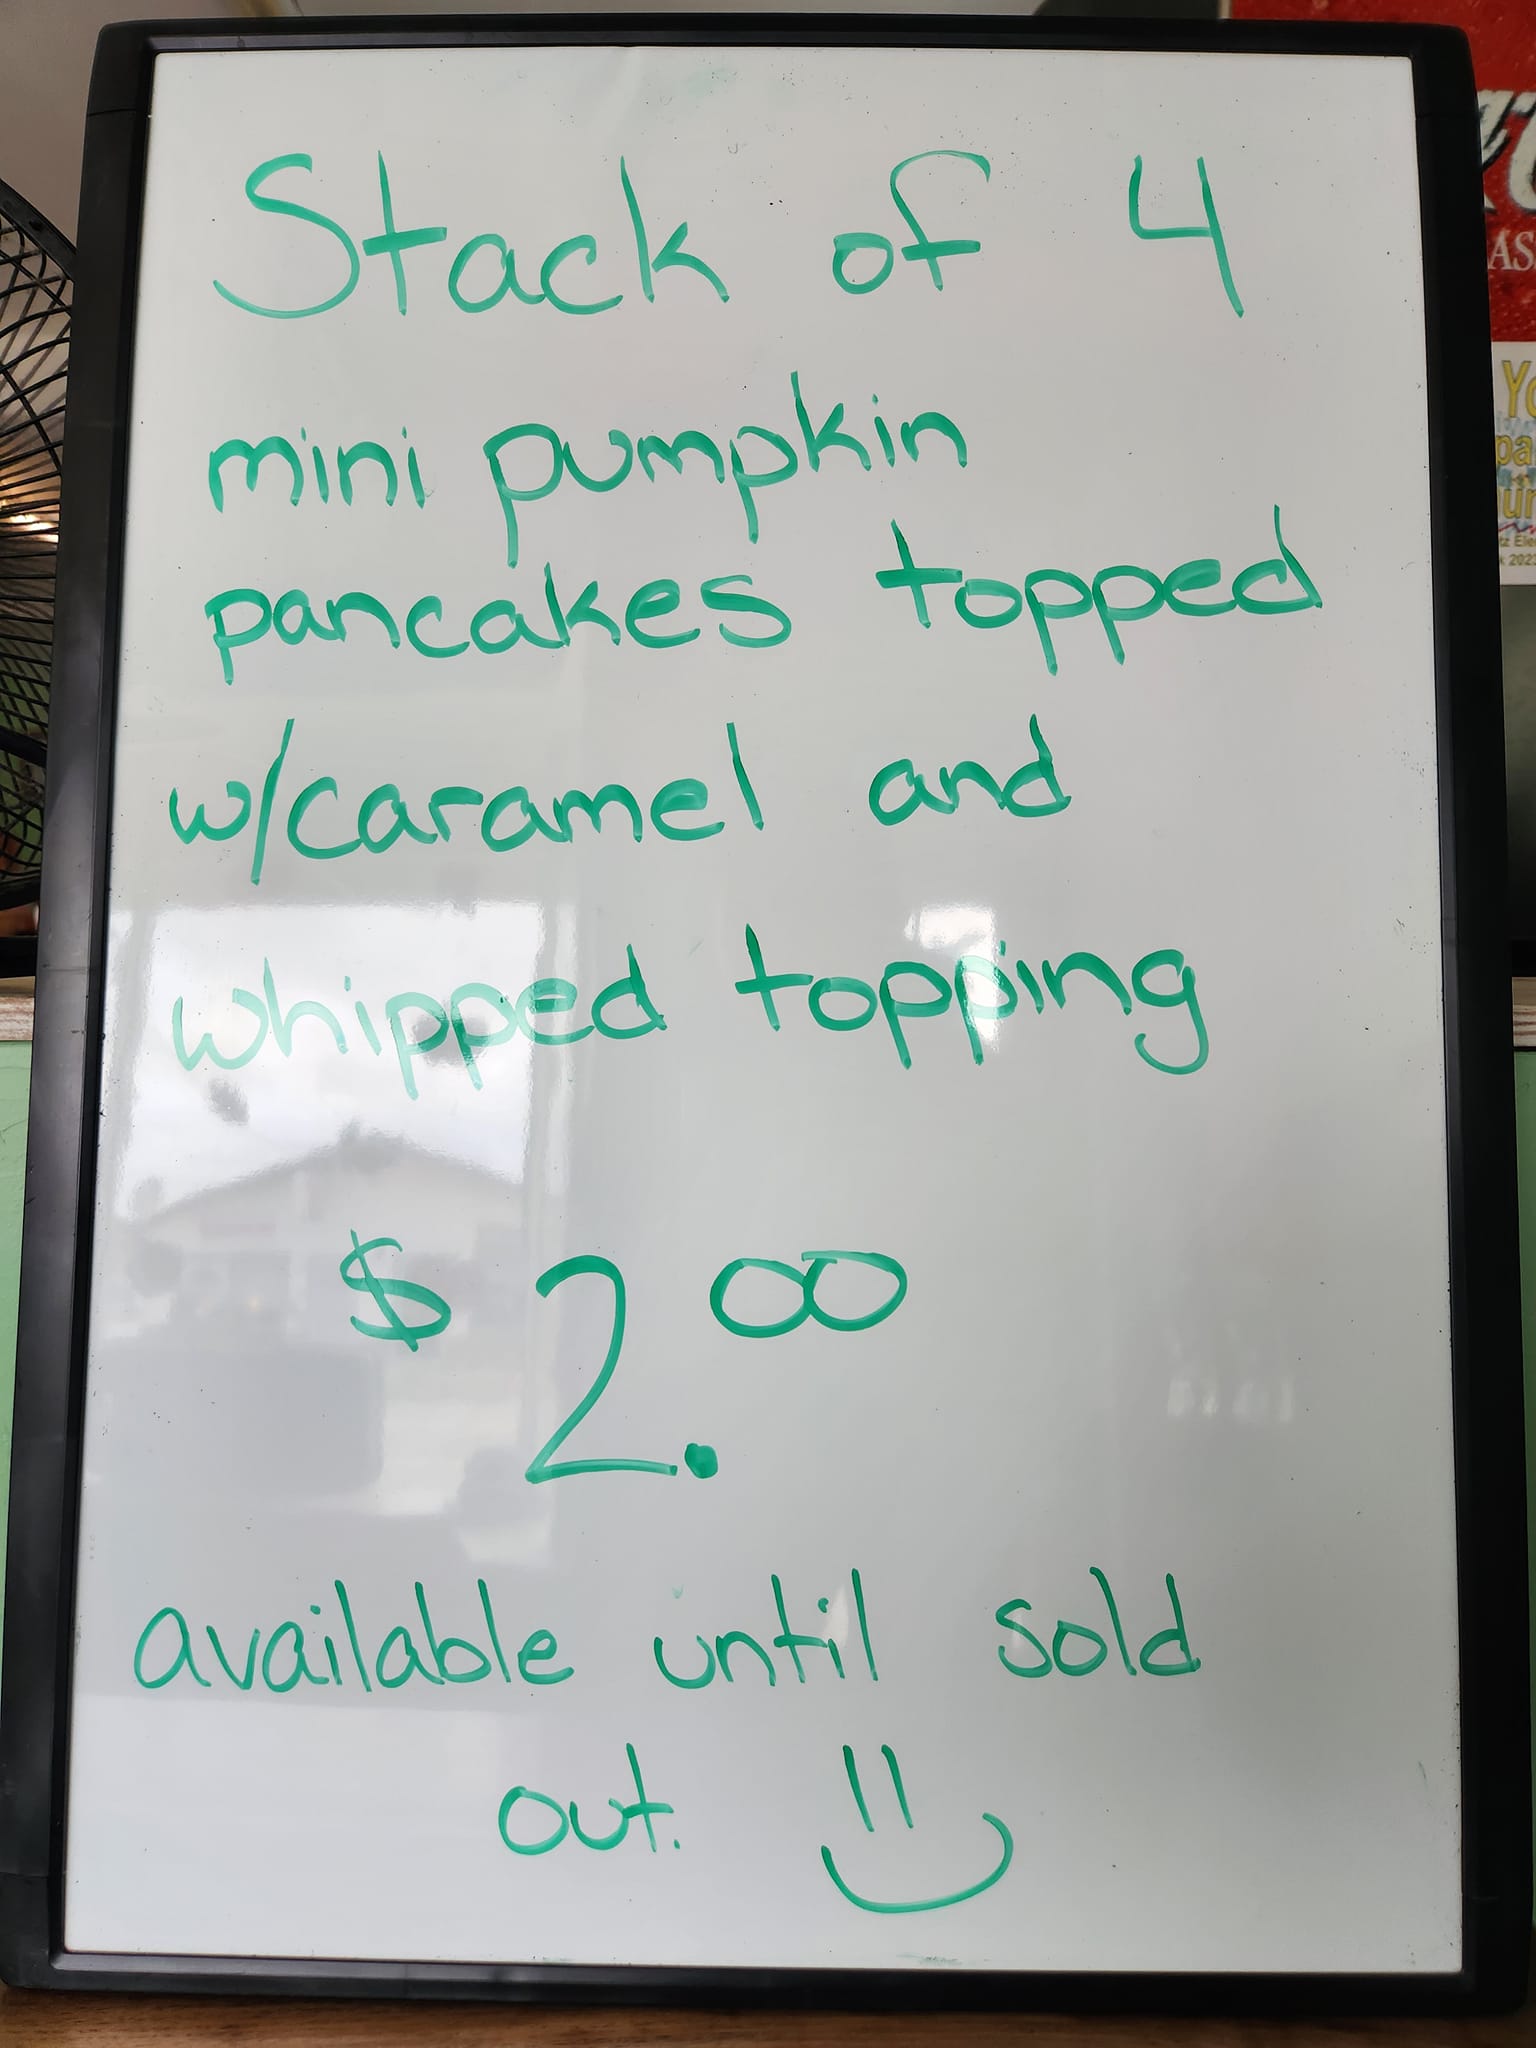 Stack of 4
mini pumpkin
pancakes topped
w/caramel and
whipped topping
$ 2.00
available until sold
out.
AS
Yo
pa
2023